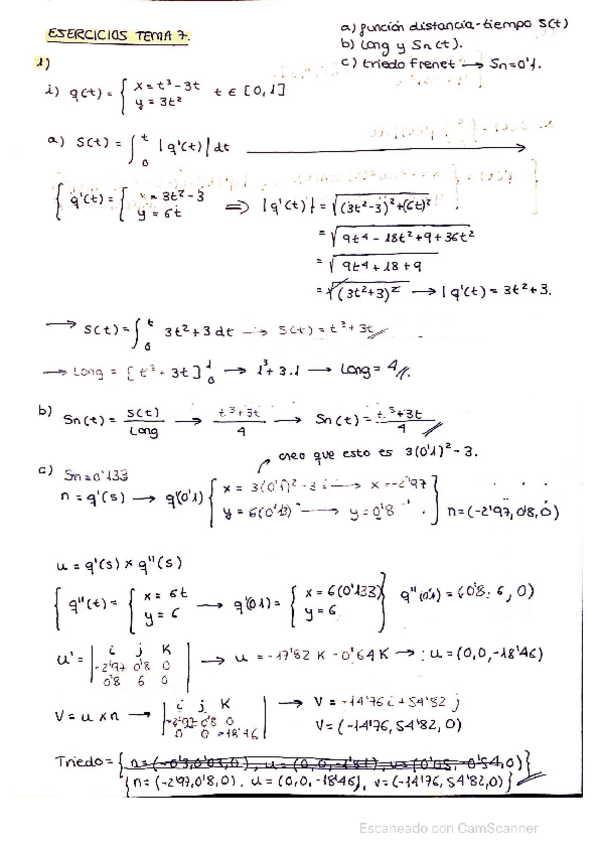 EJERCICIOS TEMA 7.
a) función distancia-tiempo S(t)
b) Long y Sn(t).
c) triedo frenet → Sn=0'1.
1)
i) q(t) = { x = t³-3t y = 3t² t ∈ [0,1]
a) S(t) = ∫₀ᵗ |q'(t)| dt →
{ q'(t) = { x = 3t²-3 y = 6t ⇒ |q'(t)| = √(3t²-3)²+(6t)²
= √9t⁴-18t²+9+36t²
= √9t⁴+18+9
= √(3t²+3)² → |q'(t) = 3t²+3.
→ S(t) = ∫₀ᵗ 3t²+3 dt → S(t) = t³+3t
→ Long = [t³+3t]₀¹ → 1³+3.1 → Long = 4
b) Sn(t) = S(t)/Long → t³+3t/4 → Sn(t) = t³+3t/4
creo que esto es 3(0'1)²-3.
c) Sn=0'133
n = q'(s) → q'(0'1) { x = 3(0'1)²-3 → x=-2'97 y = 6(0'13) → y = 0'8 } n = (-2'97, 0'8, 0)
u = q'(s) × q''(s)
{ q''(t) = { x = 6t y = 6 → q''(0'1) = { x = 6(0'133) y = 6 } q''(0'1) = (0'8, 6, 0)
u' = | i j K -2'97 0'8 0 0'8 6 0 | → u = -17'82 K - 0'64 K → u = (0,0,-18'46)
V = u × n → | i j K -2'97 0'8 0 0 0 -18'46 | → V = -14'76 i + 54'82 j
V = (-14'76, 54'82, 0)
Triedo = {
{n = (-2'97, 0'8, 0). u = (0,0,-18'46), v = (-14'76, 54'82, 0)}
Escaneado con CamScanner